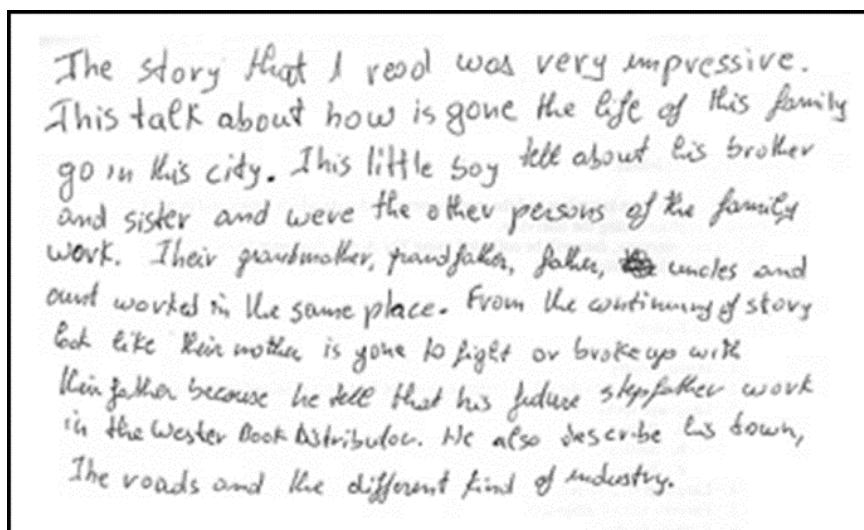 The story that I read was very impressive.
This talk about how is gone the life of this family
go in this city. This little boy tell about his brother
and sister and were the other persons of the family
work. Their grandmother, grandfather, father, uncles and
aunt worked in the same place. From the continuing of story
look like their mother is gone to fight or broke up with
their father because he tell that his future stepfather work
in the Wester Book Distributor. He also describe his town,
The roads and the different kind of industry.